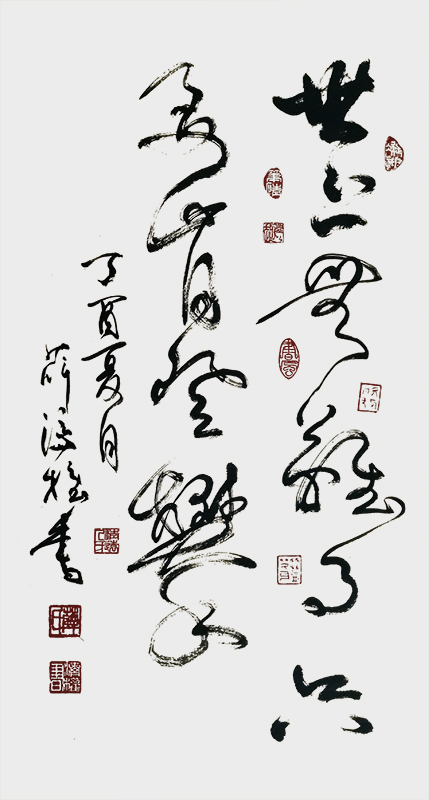 世上無難事只
要肯登攀
丁酉夏月
薛書